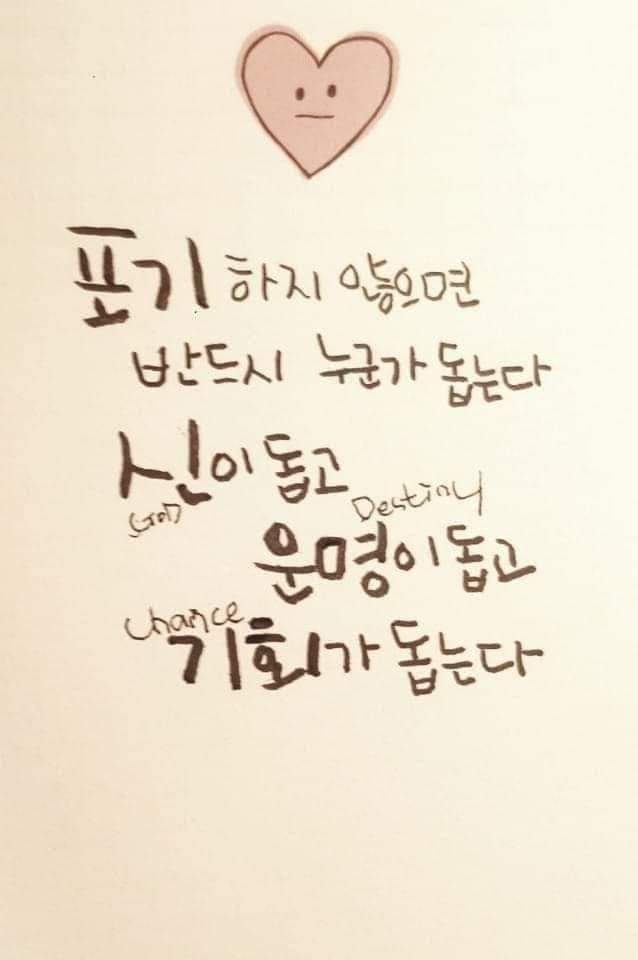 포기하지 않으면
반드시 누군가 돕는다
신이 돕고
God
Destiny
운명이 돕고
Chance
기회가 돕는다